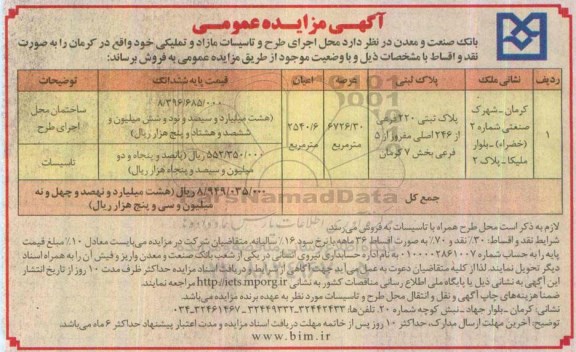 آگهی مزایده عمومی
بانک صنعت و معدن در نظر دارد محل اجرای طرح و تاسیسات مازاد و تملیکی خود واقع در کرمان را به صورت
نقد و اقساط با مشخصات ذیل و با وضعیت موجود از طریق مزایده عمومی به فروش برساند:
ردیف نشانی ملک پلاک ثبتی عرصه اعیان قیمت پایه ششدانگ توضیحات
۱
کرمان - شهرک
صنعتی شماره ۲
(خضراء) - بلوار
ملیکا - پلاک ۲
پلاک ثبتی ۲۲۰ فرعی
از ۲۴۶ اصلی مفروز از ۵
فرعی بخش ۷ کرمان
۶۷۲۶/۳۰
مترمربع
۲۵۴۰/۶
مترمربع
۸/۳۹۶/۶۸۵/۰۰۰
(هشت میلیارد و سیصد و نود و شش میلیون و
ششصد و هشتاد و پنج هزار ریال)
ساختمان محل
اجرای طرح
۵۵۲/۳۵۰/۰۰۰ ریال (پانصد و پنجاه و دو
میلیون و سیصد و پنجاه هزار ریال)
تاسیسات
جمع کل
۸/۹۴۹/۰۳۵/۰۰۰ ریال (هشت میلیارد و نهصد و چهل و نه
میلیون و سی و پنج هزار ریال)
لازم به ذکر است محل طرح همراه با تاسیسات به فروش می رسد.
شرایط نقد و اقساط: ۳۰٪ نقد و ۷۰٪ به صورت اقساط ۳۶ ماهه با نرخ سود ۱۶٪ سالیانه متقاضیان شرکت در مزایده می‌بایست معادل ۱۰٪ مبلغ قیمت
پایه را به حساب شماره ۰۱۰۰۰۰۲۸۶۱۰۰۷ به نام اداره حسابداری نیروی انسانی در یکی از شعب بانک صنعت و معدن واریز و فیش آن را به همراه اسناد
دیگر تحویل نمایند. لذا از کلیه متقاضیان دعوت به عمل می‌آید جهت آگاهی از شرایط و دریافت اسناد مزایده حداکثر ظرف مدت ۱۰ روز از تاریخ انتشار
این آگهی به نشانی ذیل یا پایگاه ملی اطلاع رسانی مناقصات کشور به نشانی http://iets.mporg.ir مراجعه نمایند.
ضمناً هزینه‌های چاپ آگهی و نقل و انتقال محل طرح و تاسیسات مورد نظر به عهده برنده مزایده می‌باشد.
نشانی: کرمان - بلوار جهاد - نبش کوچه شماره ۲۰. تلفن‌ها: ۳۲۴۴۲۴۳۳-۳۲۴۴۹۳۳۲-۰۳۴-۳۲۴۶۱۴۶۷
توضیح: آخرین مهلت ارسال مدارک، حداکثر ۱۰ روز پس از خاتمه مهلت دریافت اسناد مزایده و مدت اعتبار پیشنهاد حداکثر ۶ ماه می‌باشد.
www.bim.ir